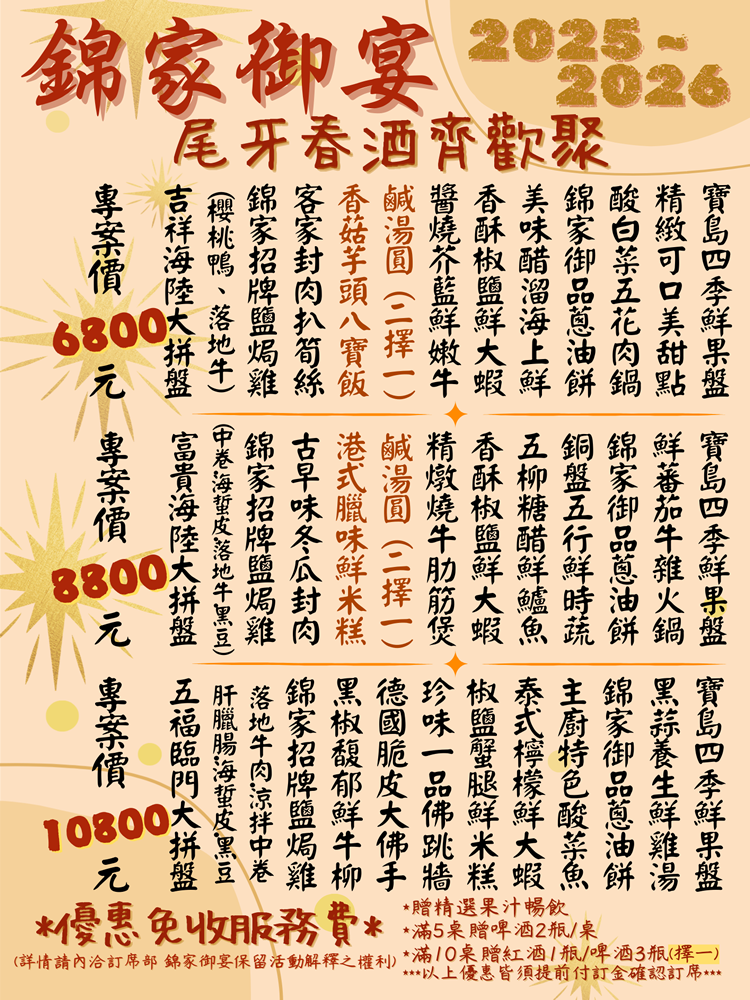 錦家御宴
2025~
2026
尾牙春酒齊歡聚
專案價
6800
元
吉祥海陸大拼盤
(櫻桃鴨、落地牛)
錦家招牌鹽焗雞
客家封肉扒筍絲
香菇芋頭八寶飯
鹹湯圓(二擇一)
醬燒芥藍鮮嫩牛
香酥椒鹽鮮大蝦
美味醋溜海上鮮
錦家御品蔥油餅
酸白菜五花肉鍋
精緻可口美甜點
寶島四季鮮果盤
專案價
8800
元
富貴海陸大拼盤
(中卷海蜇皮落地牛黑豆)
錦家招牌鹽焗雞
古早味冬瓜封肉
港式臘味鮮米糕
鹹湯圓(二擇一)
精燉燒牛肋筋煲
香酥椒鹽鮮大蝦
五柳糖醋鮮鱸魚
銅盤五行鮮時蔬
錦家御品蔥油餅
鮮蕃茄牛雜火鍋
寶島四季鮮果盤
專案價
10800
元
五福臨門大拼盤
肝臘腸海蜇皮黑豆
落地牛肉涼拌中卷
錦家招牌鹽焗雞
黑椒馥郁鮮牛柳
德國脆皮大佛手
珍味一品佛跳牆
椒鹽蟹腿鮮米糕
泰式檸檬鮮大蝦
主廚特色酸菜魚
錦家御品蔥油餅
黑蒜養生鮮雞湯
寶島四季鮮果盤
*優惠免收服務費*
(詳情請內洽訂席部 錦家御宴保留活動解釋之權利)
*贈精選果汁暢飲
*滿5桌贈啤酒2瓶/桌
*滿10桌贈紅酒1瓶/啤酒3瓶(擇一)
***以上優惠皆須提前付訂金確認訂席***